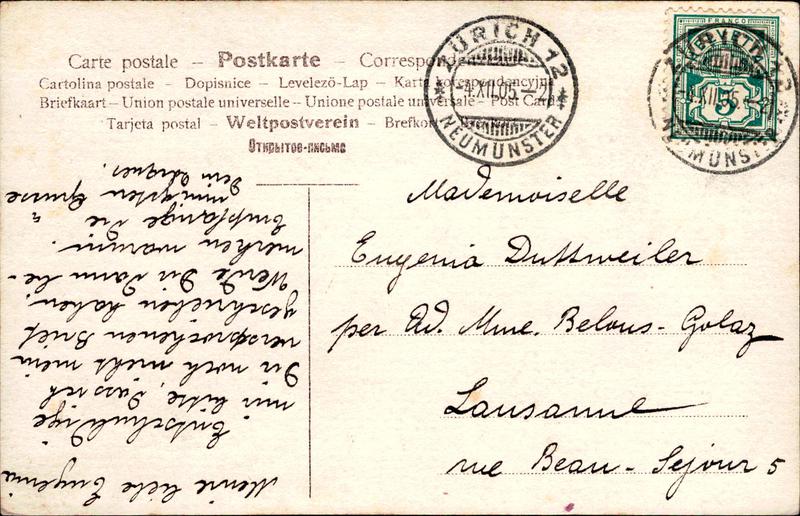 Carte postale – Postkarte – Correspond
Cartolina postale – Dopisnice – Levelezö-Lap – Karta korespondencyjna
Briefkaart – Union postale universelle – Unione postale universale – Post Card
Tarjeta postal – Weltpostverein – Brefkort
Открытое-письмо
ZÜRICH 12
4.XII.05.–2
NEUMÜNSTER
FRANCO
HELVETIA
5
4.XII.05.–2
NEUMÜNSTER
Mademoiselle
Eugenia Duttweiler
per Ad. Mme. Belous-Golaz
Lausanne
rue Beau-Sejour 5
Meine liebe Eugenia
Entschuldige
mir bitte, dass ich
Dir noch nicht mein
versprochenen Brief
geschrieben haben.
Werde Dir dann be-
merken warum.
Empfange die
innigsten Grüsse
Dein